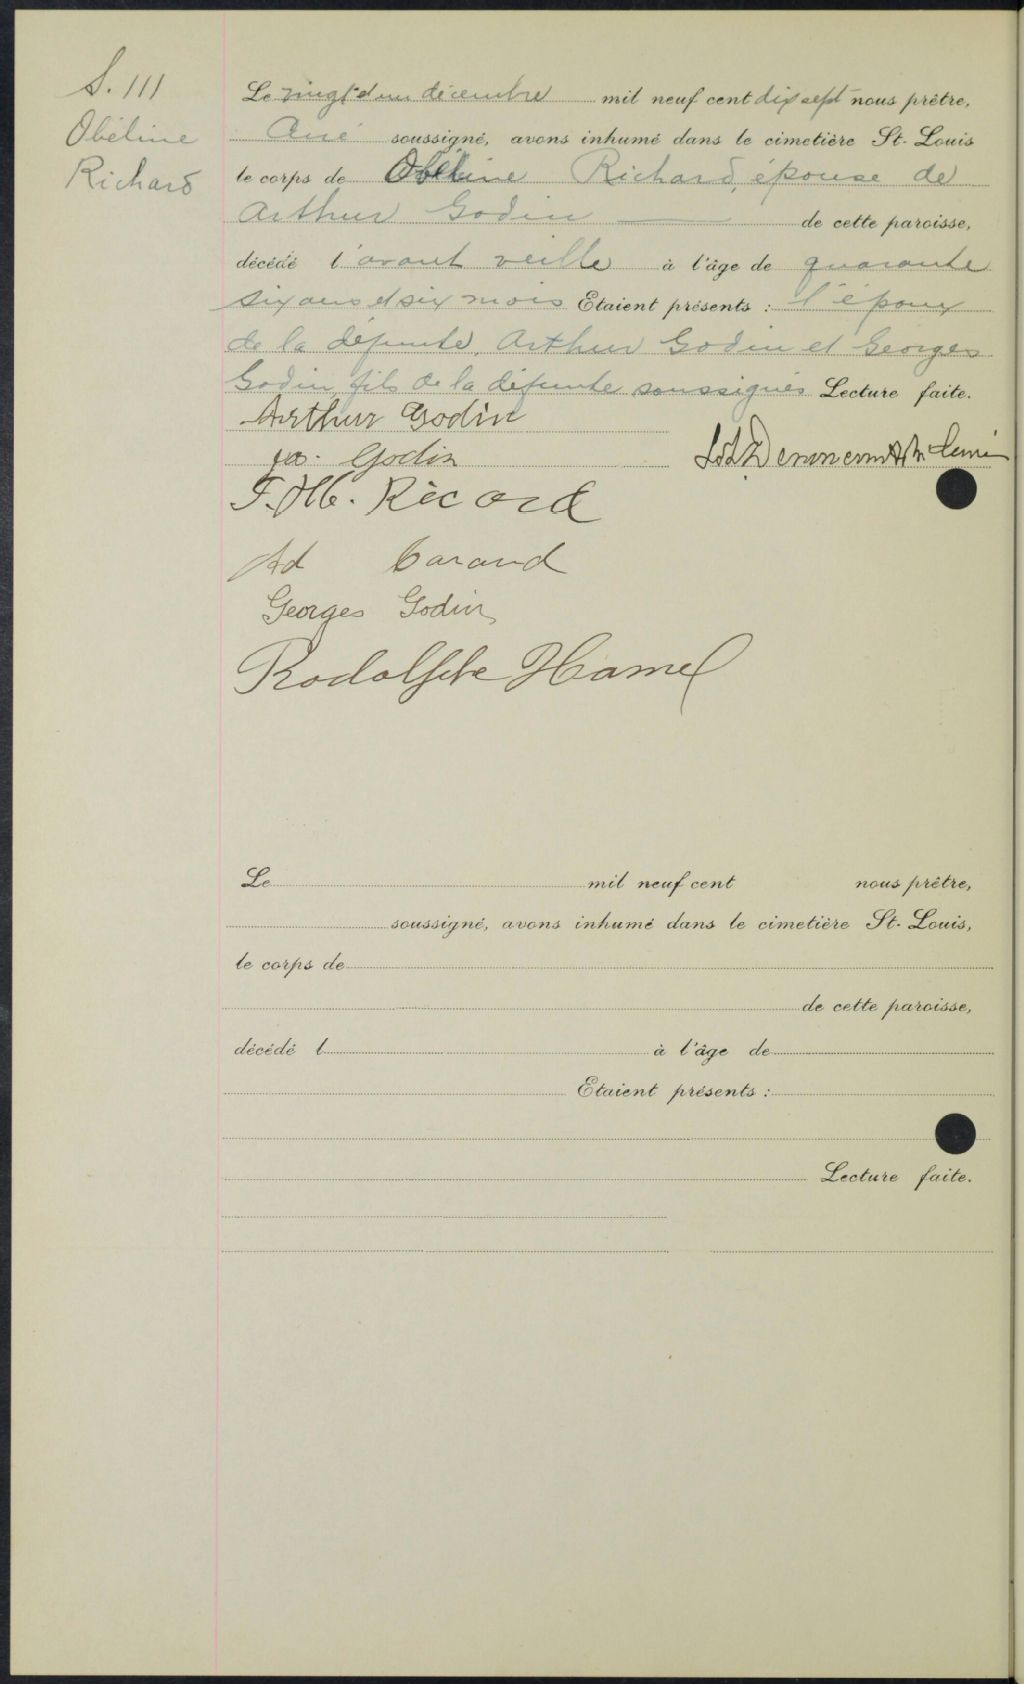 S. 111
Obéline
Richard
Le vingt et un décembre mil neuf cent dix sept nous prêtre,
Curé soussigné, avons inhumé dans le cimetière St-Louis
le corps de Obéline Richard, épouse de
Arthur Godin de cette paroisse,
décédé l'avant veille à l'âge de quarante
six ans et six mois Etaient présents : l'époux
de la défunte, Arthur Godin et Georges
Godin, fils de la défunte soussignés Lecture faite.
Arthur Godin
Godin
Curé
Ricard
Ad
Georges Godin
Rodolphe Hamel
Le mil neuf cent nous prêtre,
soussigné, avons inhumé dans le cimetière St-Louis,
le corps de
de cette paroisse,
décédé l à l'âge de
Etaient présents :
Lecture faite.